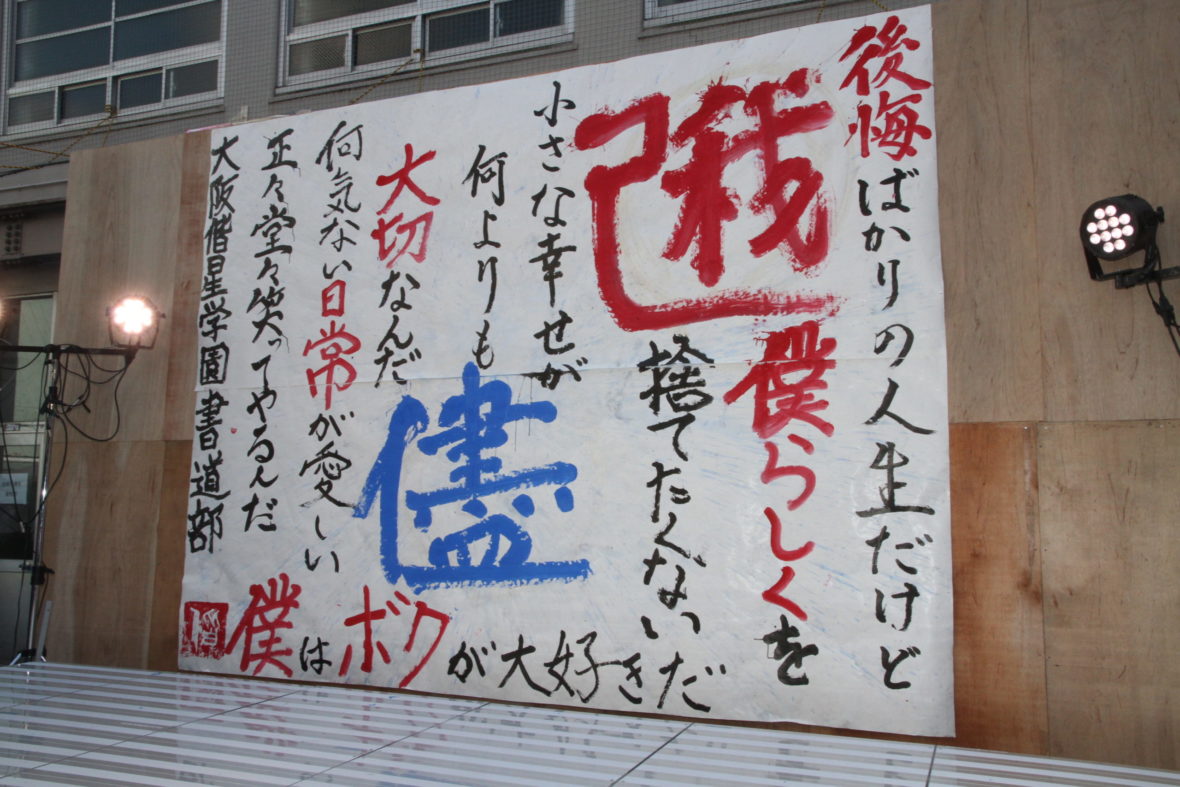 後悔ばかりの人生だけど
我
僕らしくを
捨てたくない
小さな幸せが
何よりも
儘
大切なんだ
何気ない日常が愛しい
正々堂々笑ってやるんだ
大阪偕星学園書道部
僕はボクが大好きだ